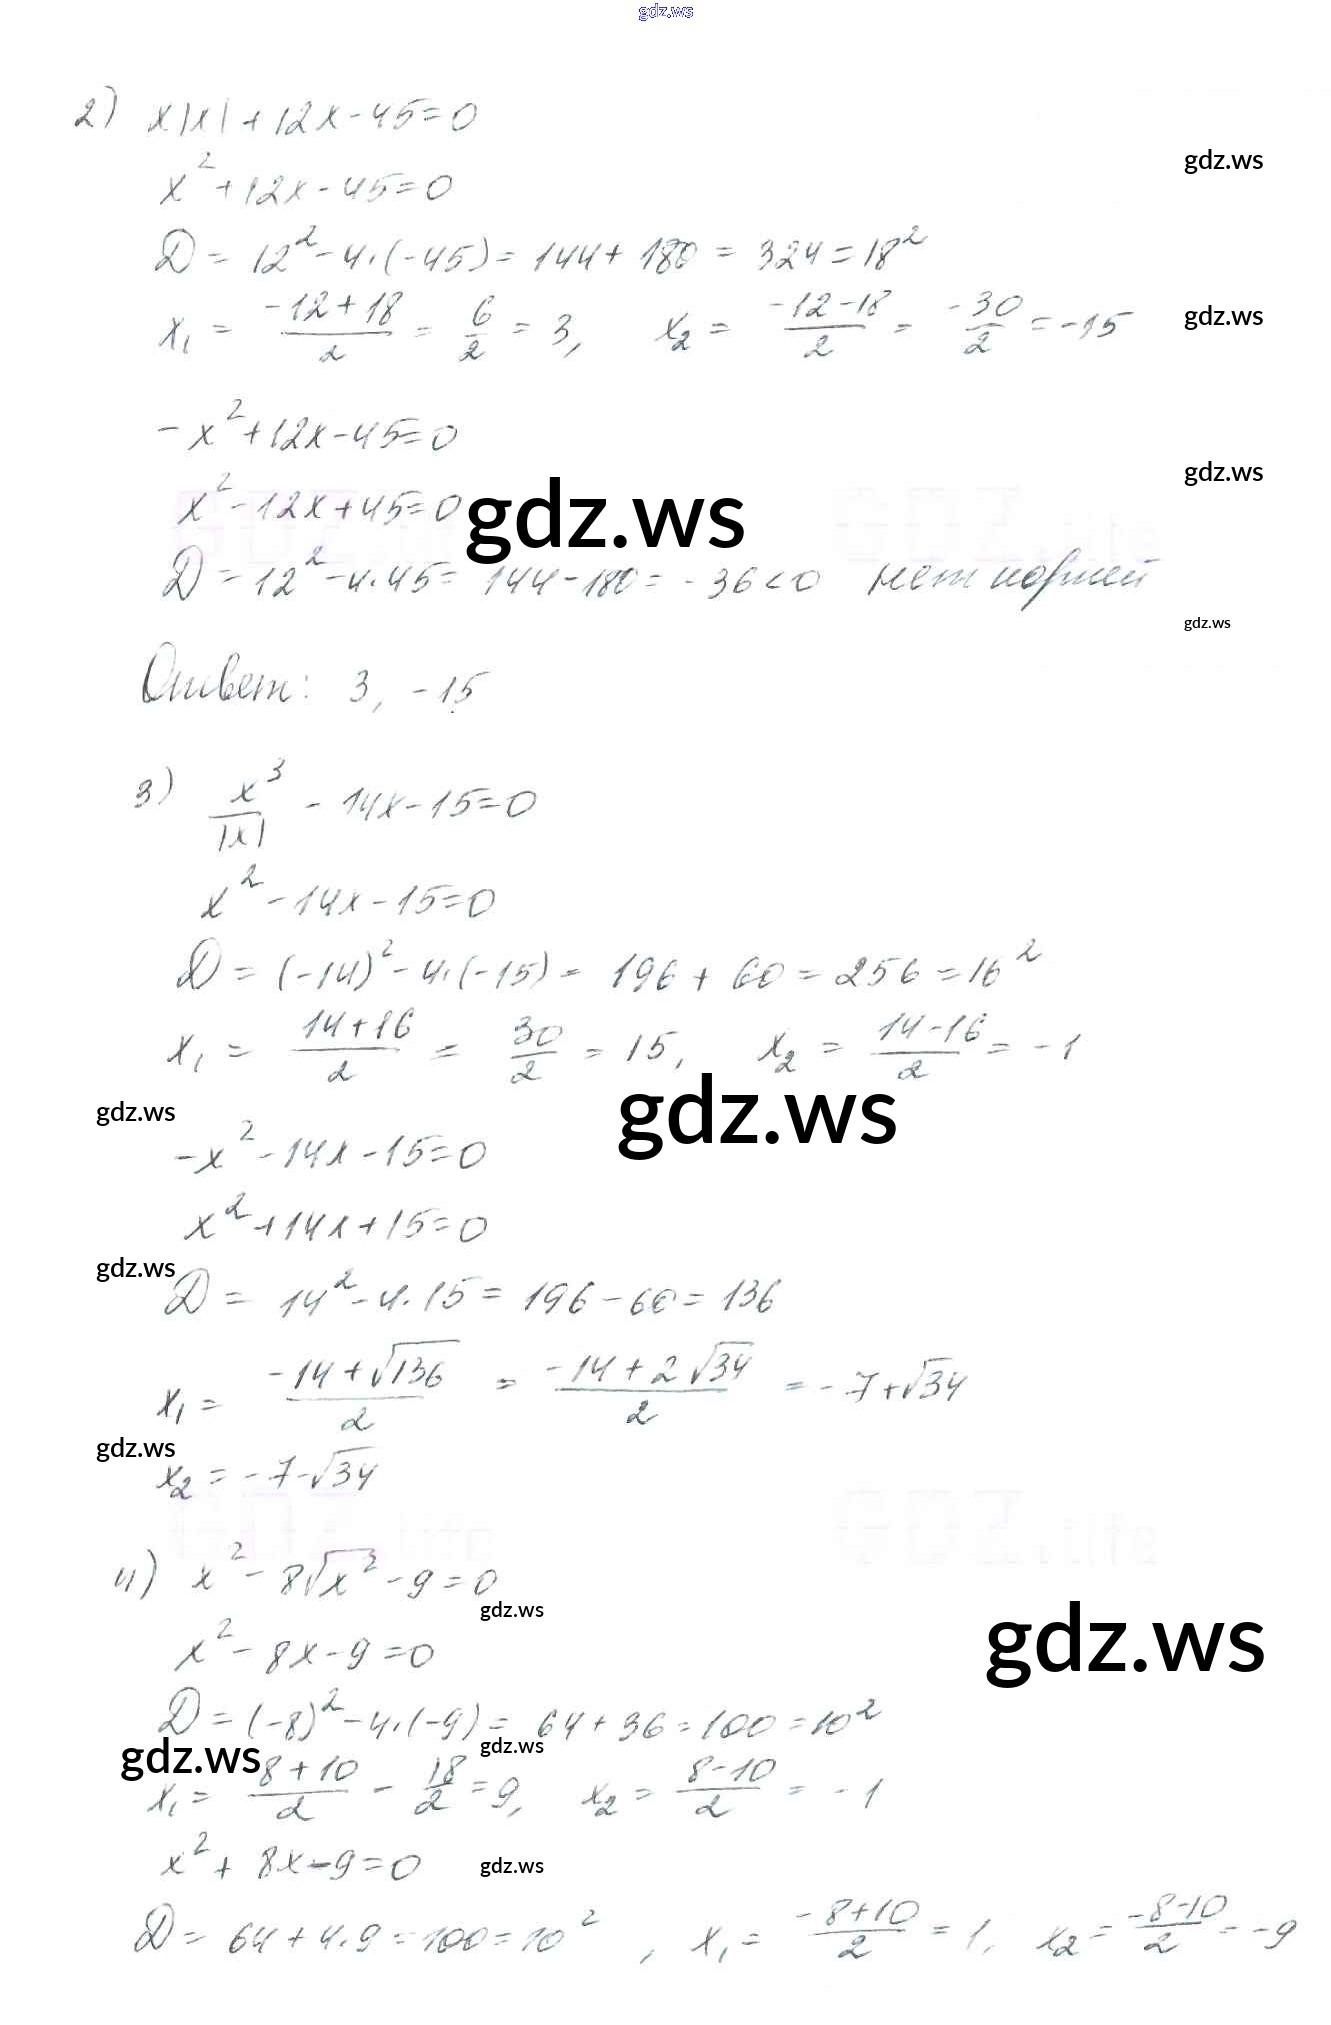 gdz.ws
2) x|x| + 12x - 45 = 0
x² + 12x - 45 = 0
gdz.ws
D = 12² - 4·(-45) = 144 + 180 = 324 = 18²
x₁ = (-12+18)/2 = 6/2 = 3, x₂ = (-12-18)/2 = -30/2 = -15
gdz.ws
-x² + 12x - 45 = 0
gdz.ws
x² - 12x + 45 = 0
gdz.ws
D = 12² - 4·45 = 144 - 180 = -36 < 0 нет корней
gdz.ws
Ответ: 3, -15
3) x³/|x| - 14x - 15 = 0
x² - 14x - 15 = 0
D = (-14)² - 4·(-15) = 196 + 60 = 256 = 16²
x₁ = (14+16)/2 = 30/2 = 15, x₂ = (14-16)/2 = -1
gdz.ws
gdz.ws
-x² - 14x - 15 = 0
x² + 14x + 15 = 0
gdz.ws
D = 14² - 4·15 = 196 - 60 = 136
x₁ = (-14+√136)/2 = (-14+2√34)/2 = -7+√34
gdz.ws
x₂ = -7-√34
4) x² - 8√x² - 9 = 0
gdz.ws
x² - 8x - 9 = 0
gdz.ws
D = (-8)² - 4·(-9) = 64 + 36 = 100 = 10²
gdz.ws
gdz.ws
x₁ = (8+10)/2 - 18/2 = 9, x₂ = (8-10)/2 = -1
x² + 8x - 9 = 0
gdz.ws
D = 64 + 4·9 = 100 = 10², x₁ = (-8+10)/2 = 1, x₂ = (-8-10)/2 = -9